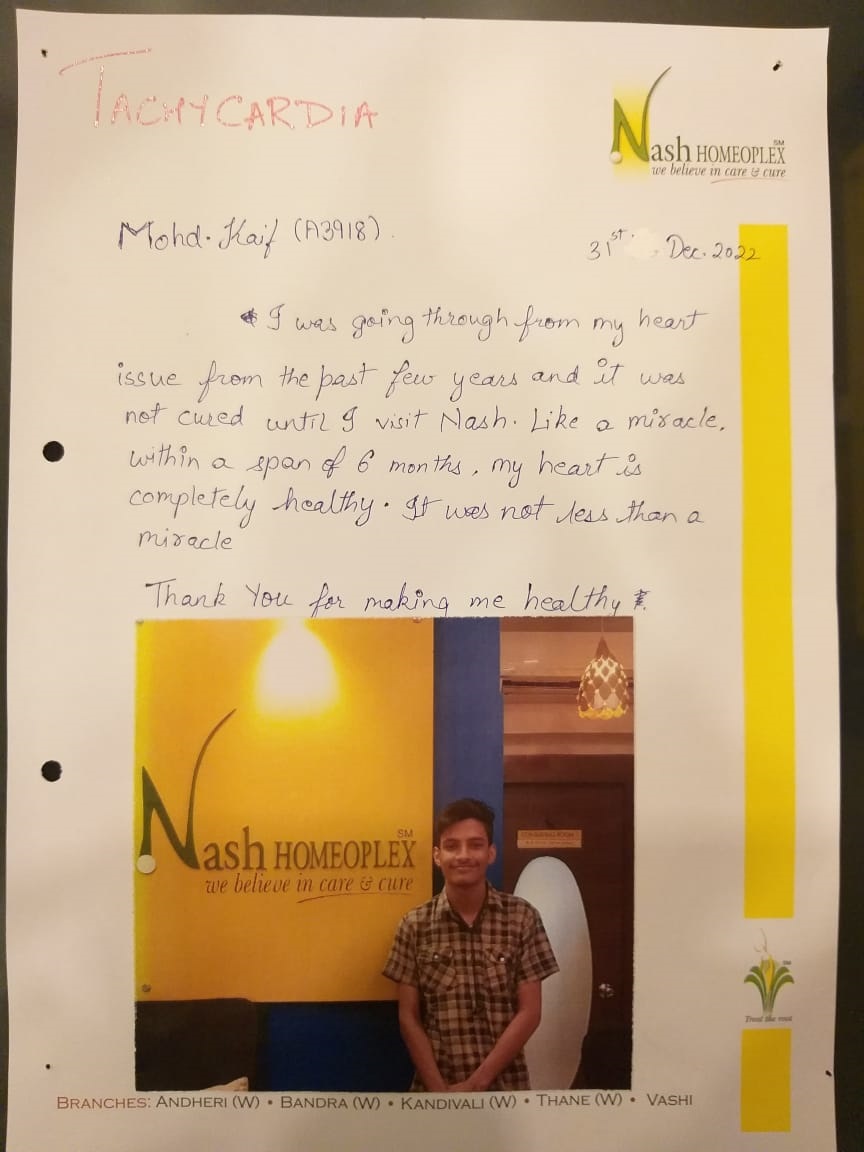 TACHYCARDIA
Nash HOMEOPLEX SM
we believe in care & cure
Mohd. Kaif (A3918).
31st Dec. 2022
I was going through from my heart
issue from the past few years and it was
not cured until I visit Nash. Like a miracle,
within a span of 6 months, my heart is
completely healthy. It was not less than a
miracle
Thank You for making me healthy
Nash HOMEOPLEX SM
we believe in care & cure
CONSULTING ROOM
SM
Trust the root
BRANCHES: ANDHERI (W) • BANDRA (W) • KANDIVALI (W) • THANE (W) • VASHI